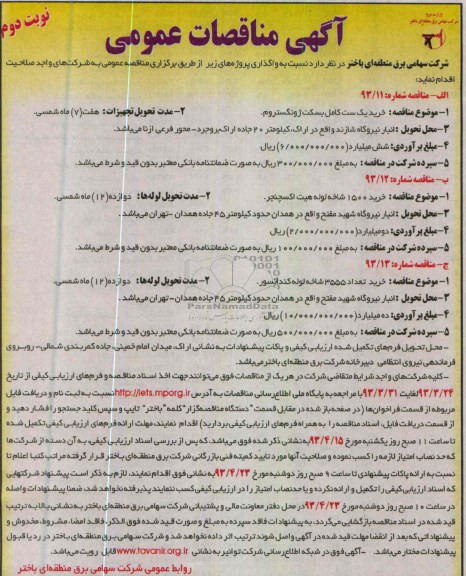 نوبت دوم
آگهی مناقصات عمومی
وزارت نیرو
شرکت سهامی برق منطقه‌ای باختر
شرکت سهامی برق منطقه‌ای باختر در نظر دارد نسبت به واگذاری پروژه‌های زیر از طریق برگزاری مناقصه عمومی به شرکت‌های واجد صلاحیت
اقدام نماید:
الف- مناقصه شماره: ۹۳/۱۱
۱- موضوع مناقصه: خرید یک ست کامل بسکت ژونگستروم. ۲- مدت تحویل تجهیزات: هفت (۷) ماه شمسی.
۳- محل تحویل: انبار نیروگاه شازند واقع در اراک، کیلومتر ۲۰ جاده اراک بروجرد- محور فرعی ازنا می‌باشد.
۴- مبلغ برآوردی: شش میلیارد (۶/۰۰۰/۰۰۰/۰۰۰) ریال
۵- سپرده شرکت در مناقصه: به مبلغ ۳۰۰/۰۰۰/۰۰۰ ریال به صورت ضمانتنامه بانکی معتبر بدون قید و شرط می‌باشد.
ب- مناقصه شماره: ۹۳/۱۲
۱- موضوع مناقصه: خرید ۱۵۰۰ شاخه لوله هیت اکسچنجر. ۲- مدت تحویل لوله‌ها: دوازده (۱۲) ماه شمسی.
۳- محل تحویل: انبار نیروگاه شهید مفتح واقع در همدان حدود کیلومتر ۴۵ جاده همدان - تهران می‌باشد.
۴- مبلغ برآوردی: دو میلیارد (۲/۰۰۰/۰۰۰/۰۰۰) ریال
۵- سپرده شرکت در مناقصه: به مبلغ ۱۰۰/۰۰۰/۰۰۰ ریال به صورت ضمانتنامه بانکی معتبر بدون قید و شرط می‌باشد.
ج- مناقصه شماره: ۹۳/۱۳
۱- موضوع مناقصه: خرید تعداد ۳۵۵۵ شاخه لوله کندانسور. ۲- مدت تحویل لوله‌ها: دوازده (۱۲) ماه شمسی.
۳- محل تحویل: انبار نیروگاه شهید مفتح واقع در همدان حدود کیلومتر ۴۵ جاده همدان- تهران می‌باشد.
ParsNamadData
۴- مبلغ برآوردی: ده میلیارد (۱۰/۰۰۰/۰۰۰/۰۰۰) ریال
۵- سپرده شرکت در مناقصه: به مبلغ ۵۰۰/۰۰۰/۰۰۰ ریال به صورت ضمانتنامه بانکی معتبر بدون قید و شرط می‌باشد.
- محل تحویل فرم‌های تکمیل شده ارزیابی کیفی و پاکات پیشنهادات به نشانی اراک، میدان امام خمینی، جاده کمربندی شمالی- روبروی
فرماندهی نیروی انتظامی دبیرخانه شرکت برق منطقه‌ای باختر می‌باشد.
- کلیه شرکت‌های واجد شرایط متقاضی شرکت در هر یک از مناقصات فوق می‌توانند جهت اخذ اسناد مناقصه و فرم‌های ارزیابی کیفی از تاریخ
۹۳/۳/۲۴ لغایت ۹۳/۳/۳۱ با مراجعه به پایگاه ملی اطلاع‌رسانی مناقصات به آدرس http://iets.mporg.ir نسبت به ثبت نام و دریافت فایل
مربوطه از قسمت فراخوان‌ها (در صفحه باز شده در مقابل قسمت "دستگاه مناقصه‌گزار" کلمه "باختر" تایپ و سپس کلید جستجو را فشار دهید و
از قسمت دریافت فایل، اسناد مناقصه را به همراه فرم‌های ارزیابی کیفی بردارید) اقدام نمایند، مهلت ارائه فرم‌های ارزیابی کیفی تکمیل شده
تا ساعت ۱۱ صبح روز یکشنبه مورخ ۹۳/۴/۱۵ به نشانی ذکر شده فوق می‌باشد، که پس از بررسی اسناد ارزیابی کیفی، به آن دسته از شرکت‌ها
که حد نصاب امتیاز لازمه را کسب نموده و صلاحیت آنها مورد تایید کمیته فنی بازرگانی شرکت برق منطقه‌ای باختر قرار گرفته مراتب کتبا اعلام تا
نسبت به ارائه پاکات پیشنهادی تا ساعت ۹ صبح روز دوشنبه مورخ ۹۳/۴/۲۳ به نشانی فوق اقدام نمایند، لازم به ذکر است پیشنهاد شرکتهایی
که اسناد ارزیابی کیفی را تکمیل و ارائه نکرده و یا حدنصاب امتیاز را در ارزیابی کیفی کسب ننمایند پذیرفته نخواهد شد، ضمنا پیشنهادات واصله
در ساعت ۱۰ صبح روز دوشنبه مورخ ۹۳/۴/۲۳ در محل دفتر معاونت مالی و پشتیبانی شرکت سهامی برق منطقه‌ای باختر به نشانی بالا به ترتیب
قید شده در اسناد مناقصه بازگشایی می‌گردد، به پیشنهادات فاقد سپرده به مبلغ و صورت قید شده فوق الذکر، فاقد امضا، مشروط، مخدوش و
پیشنهاداتی که بعد از انقضا مهلت قید شده در آگهی واصل شوند ترتیب اثر داده نخواهد شد و شرکت سهامی برق منطقه‌ای باختر در رد یا قبول
پیشنهادات مختار می‌باشد. - آگهی فوق در شبکه اطلاع‌رسانی شرکت توانیر به نشانی www.tavanir.org.ir قابل رویت می‌باشد.
روابط عمومی شرکت سهامی برق منطقه‌ای باختر